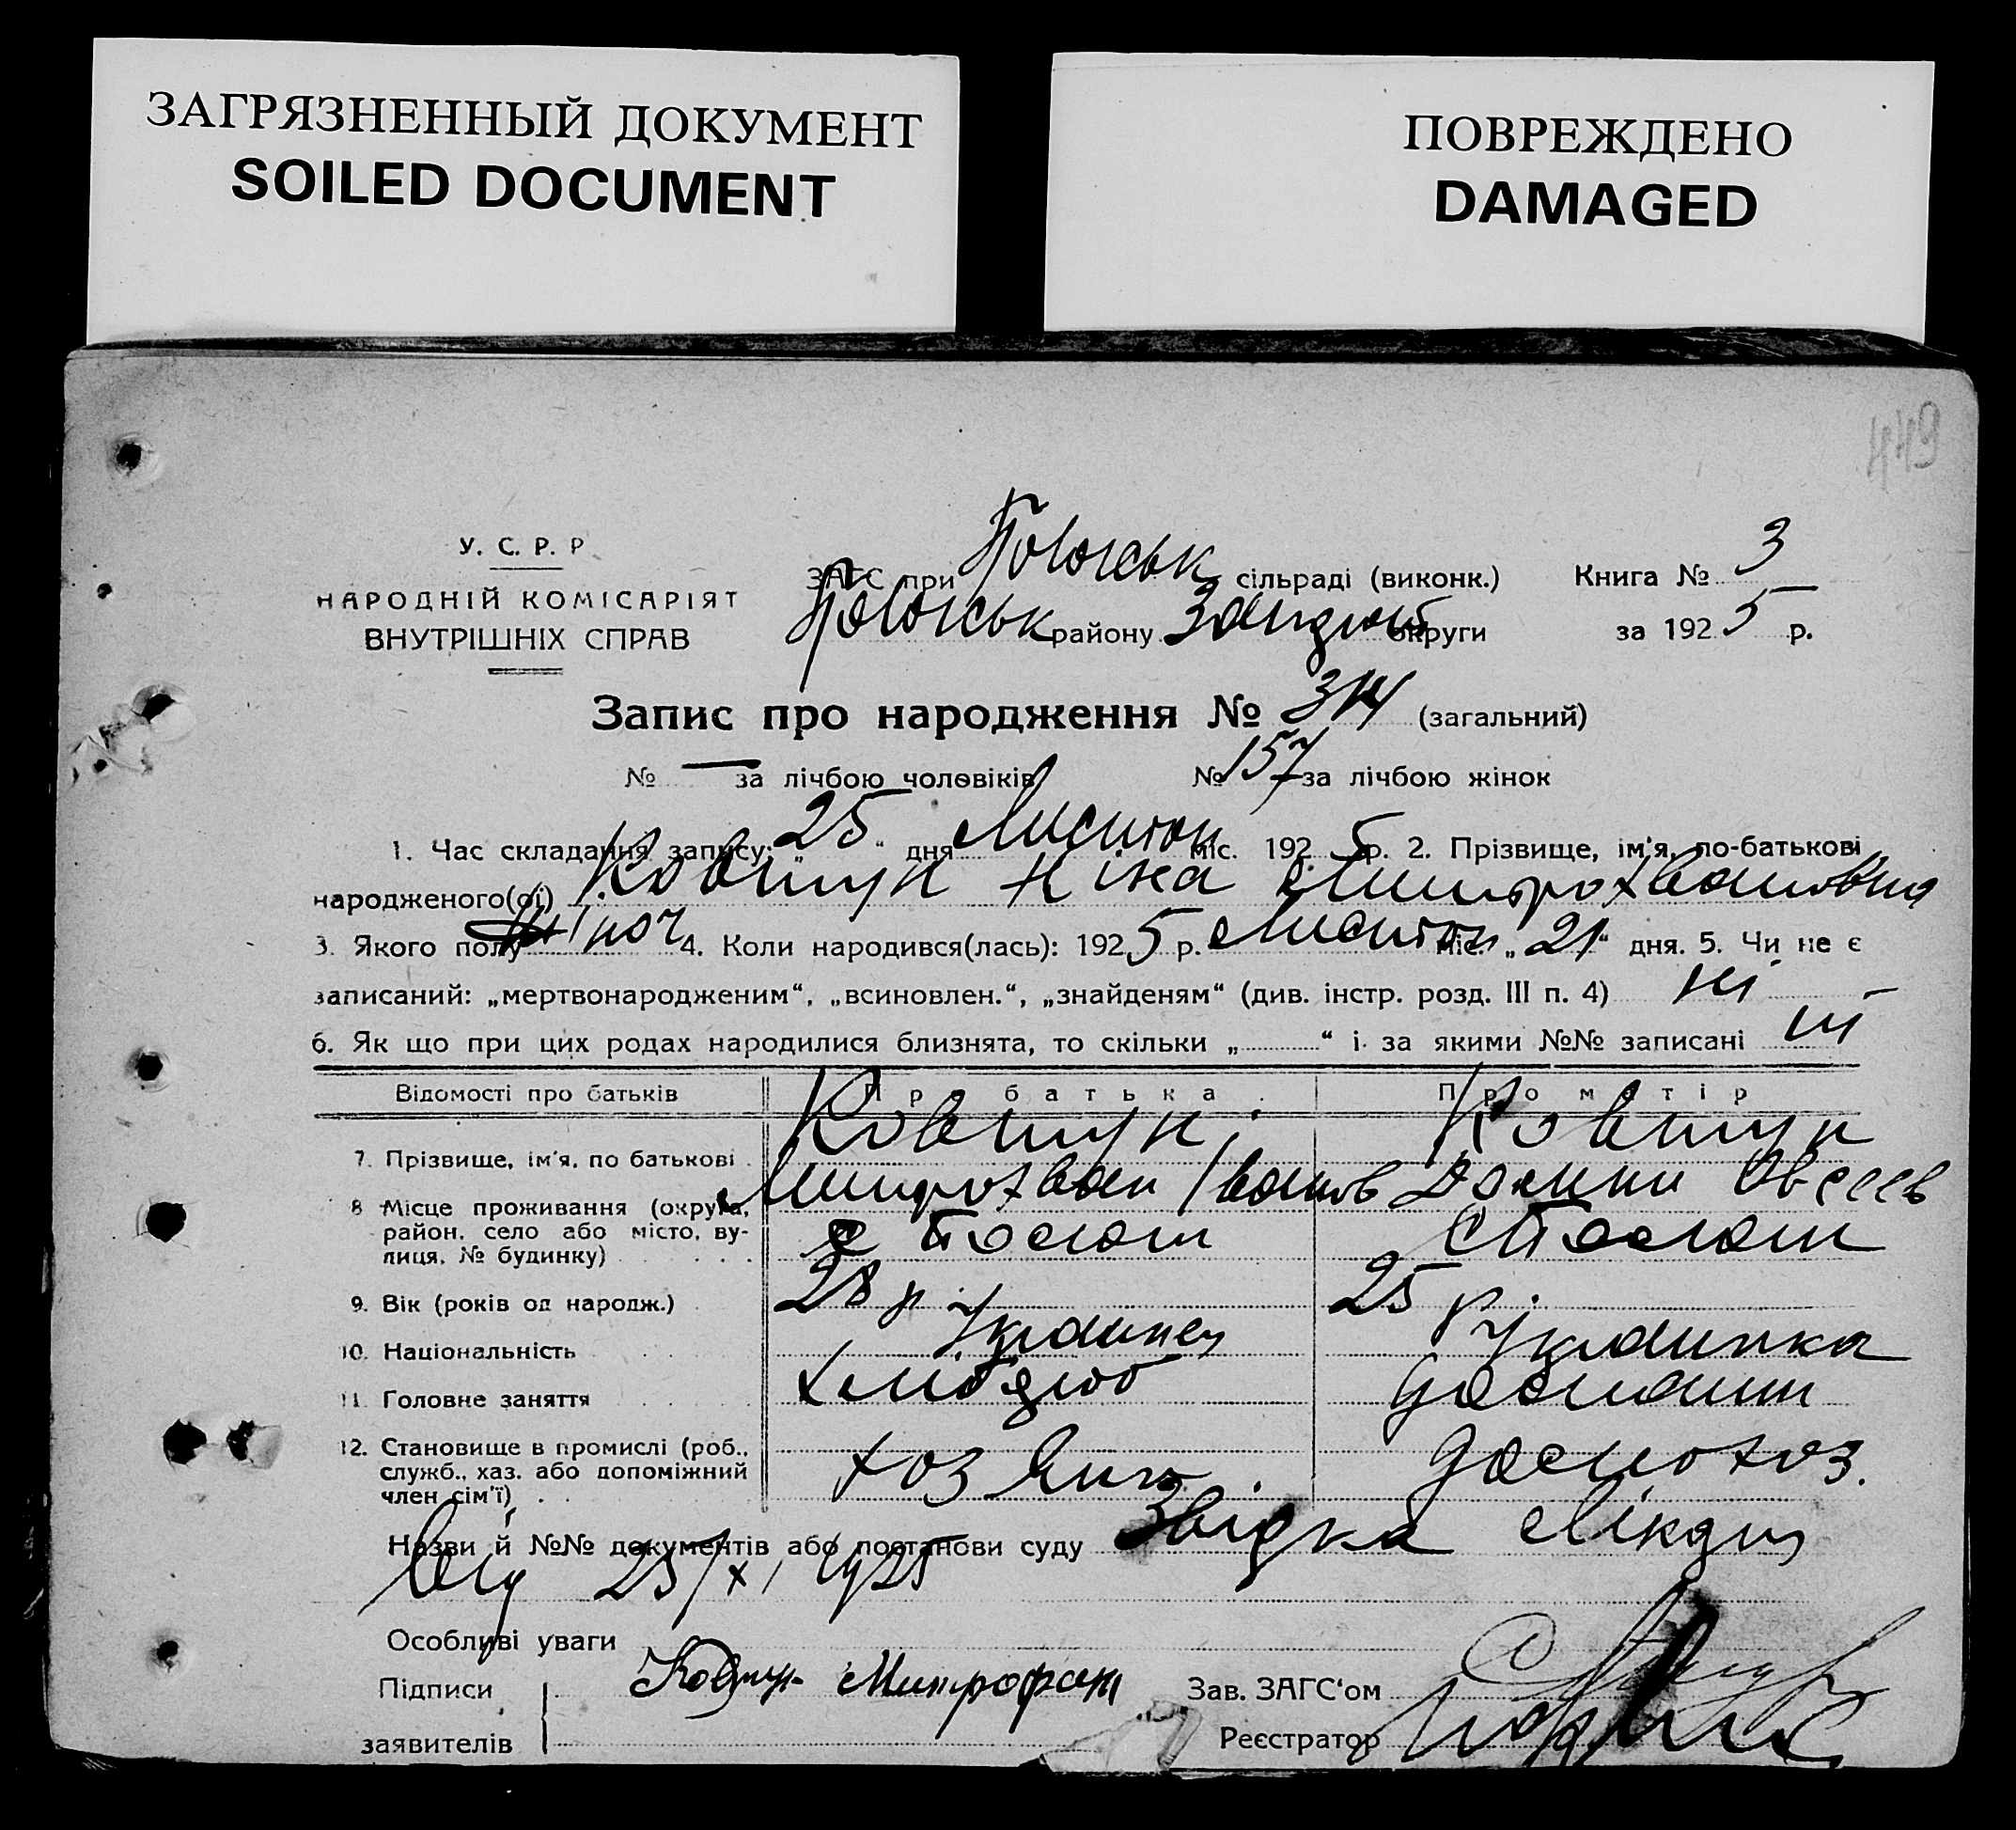 ЗАГРЯЗНЕННЫЙ ДОКУМЕНТ
SOILED DOCUMENT
ПОВРЕЖДЕНО
DAMAGED
449
У. С. Р. Р
НАРОДНІЙ КОМІСАРІЯТ
ВНУТРІШНІХ СПРАВ
ЗАГС при сільраді (виконк.)
району округи
Книга № 3
за 1925 р.
Запис про народження № 314 (загальний)
№ — за лічбою чоловіків № 157 за лічбою жінок
1. Час складання запису: „25“ дня Листоп міс. 1925 р. 2. Прізвище, ім'я, по-батькові
народженого(ої) Ковтун Ніна Митрохвановна
3. Якого полу жіноч 4. Коли народився(лась): 1925 р. Листоп міс. „21“ дня. 5. Чи не є
записаний: „мертвонародженим“, „всиновлен.“, „знайденям“ (див. інстр. розд. III п. 4) ні
6. Як що при цих родах народилися близнята, то скільки „ “ і за якими №№ записані ні
Відомості про батьків Про батька Про матір
7. Прізвище, ім'я, по батькові Ковтун Митрохван Іванов Ковтун
8 Місце проживання (округа, район, село або місто, вулиця, № будинку)
9. Вік (років од народж.) 28 р. 25 р.
10. Національність Українец Українка
11. Головне заняття хлібороб
12. Становище в промислі (роб., служб., хаз. або допоміжний член сім'ї) хозяин
Назви й №№ документів або постанови суду
25/XI 1925
Особливі уваги
Підписи заявителів Ковтун Митрофан
Зав. ЗАГС'ом
Реєстратор